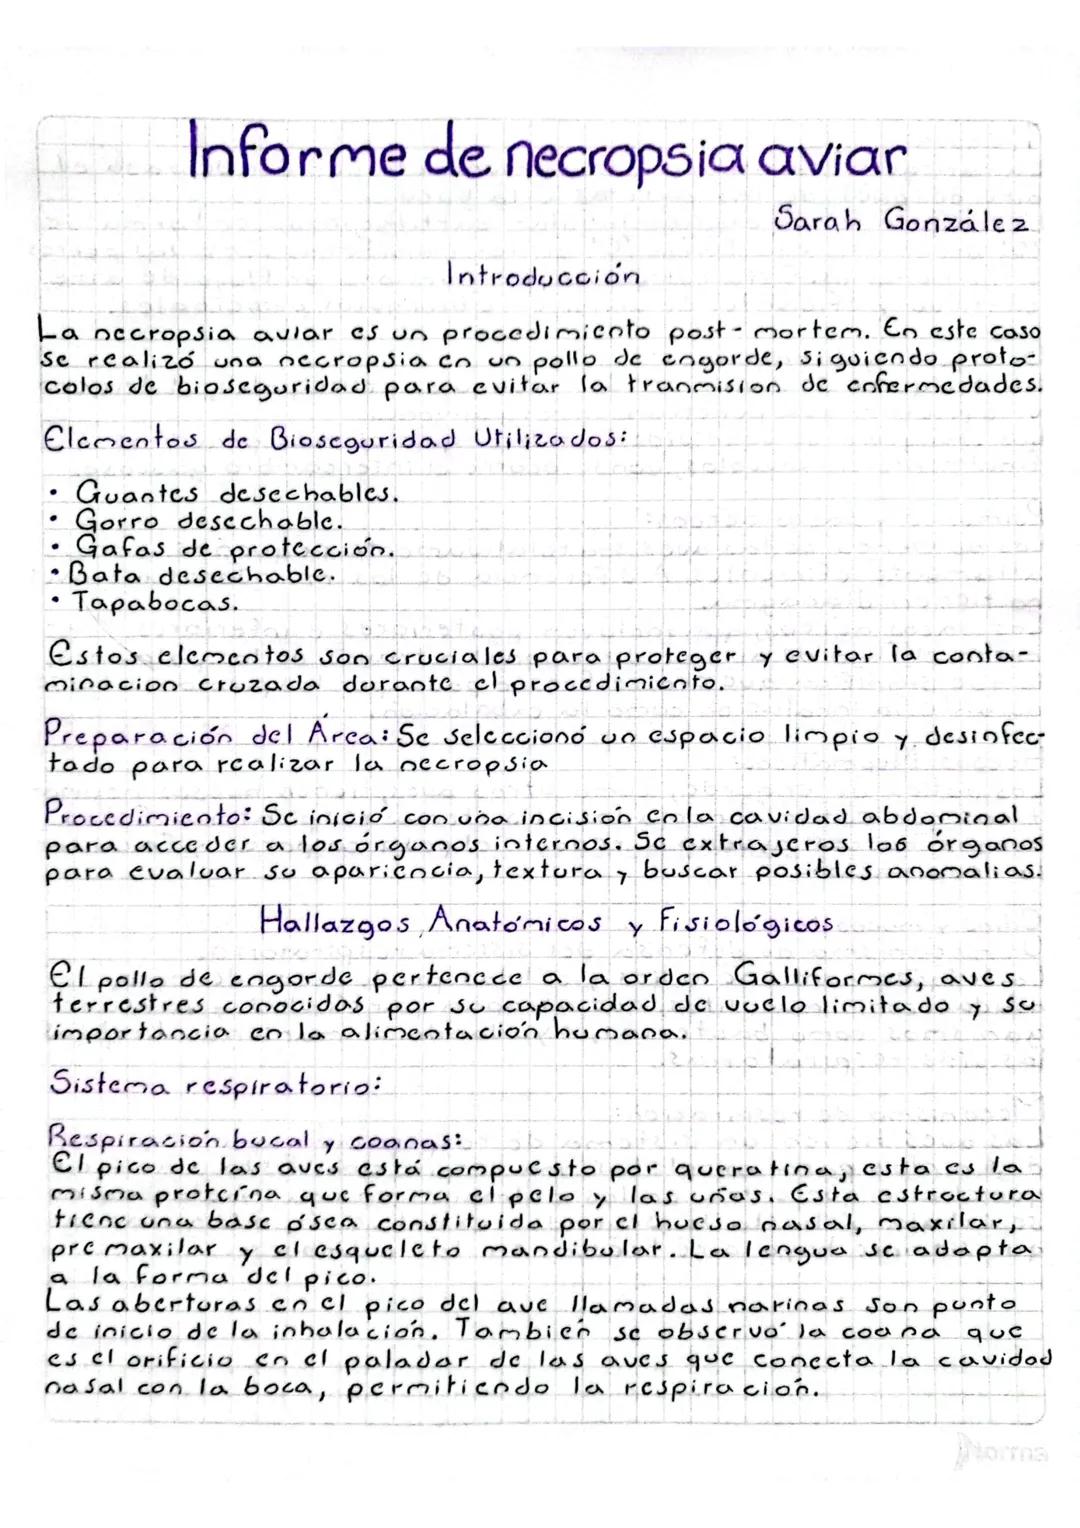 Informe de necropsia aviar
Sarah González
Introducción
La necropsia aviar es un procedimiento post-mortem. En este caso
se realizó una necropsia en un pollo de engorde, siguiendo proto-
colos de bioseguridad para evitar la tranmision de enfermedades.
Elementos de Bioseguridad Utilizados:
• Guantes desechables.
• Gorro desechable.
• Gafas de protección.
• Bata desechable.
• Tapabocas.
Estos elementos son cruciales para proteger y evitar la conta-
minacion cruzada durante el procedimiento.
Preparación del Área: Se seleccionó un espacio limpio y desinfec-
tado para realizar la necropsia
Procedimiento: Se inició con una incisión en la cavidad abdominal
para acceder a los órganos internos. Se extrajeros los órganos
para evaluar su apariencia, textura y buscar posibles anomalias.
Hallazgos Anatómicos y Fisiológicos
El pollo de engorde pertenece a la orden Galliformes, aves
terrestres conocidas por su capacidad de vuelo limitado y su
importancia en la alimentación humana.
Sistema respiratorio:
Respiración bucal y coanas:
El pico de las aves está compuesto por queratina, esta es la
misma proteína que forma el pelo y las uñas. Esta estructura
tiene una base ósea constituida por el hueso nasal, maxilar,
premaxilar y el esqueleto mandibular. La lengua se adapta
a la forma del pico.
Las aberturas en el pico del ave llamadas narinas son punto
de inicio de la inhalación. También se observó la coana que
es el orificio en el paladar de las aves que conecta la cavidad
nasal con la boca, permitiendo la respiración.
Norma